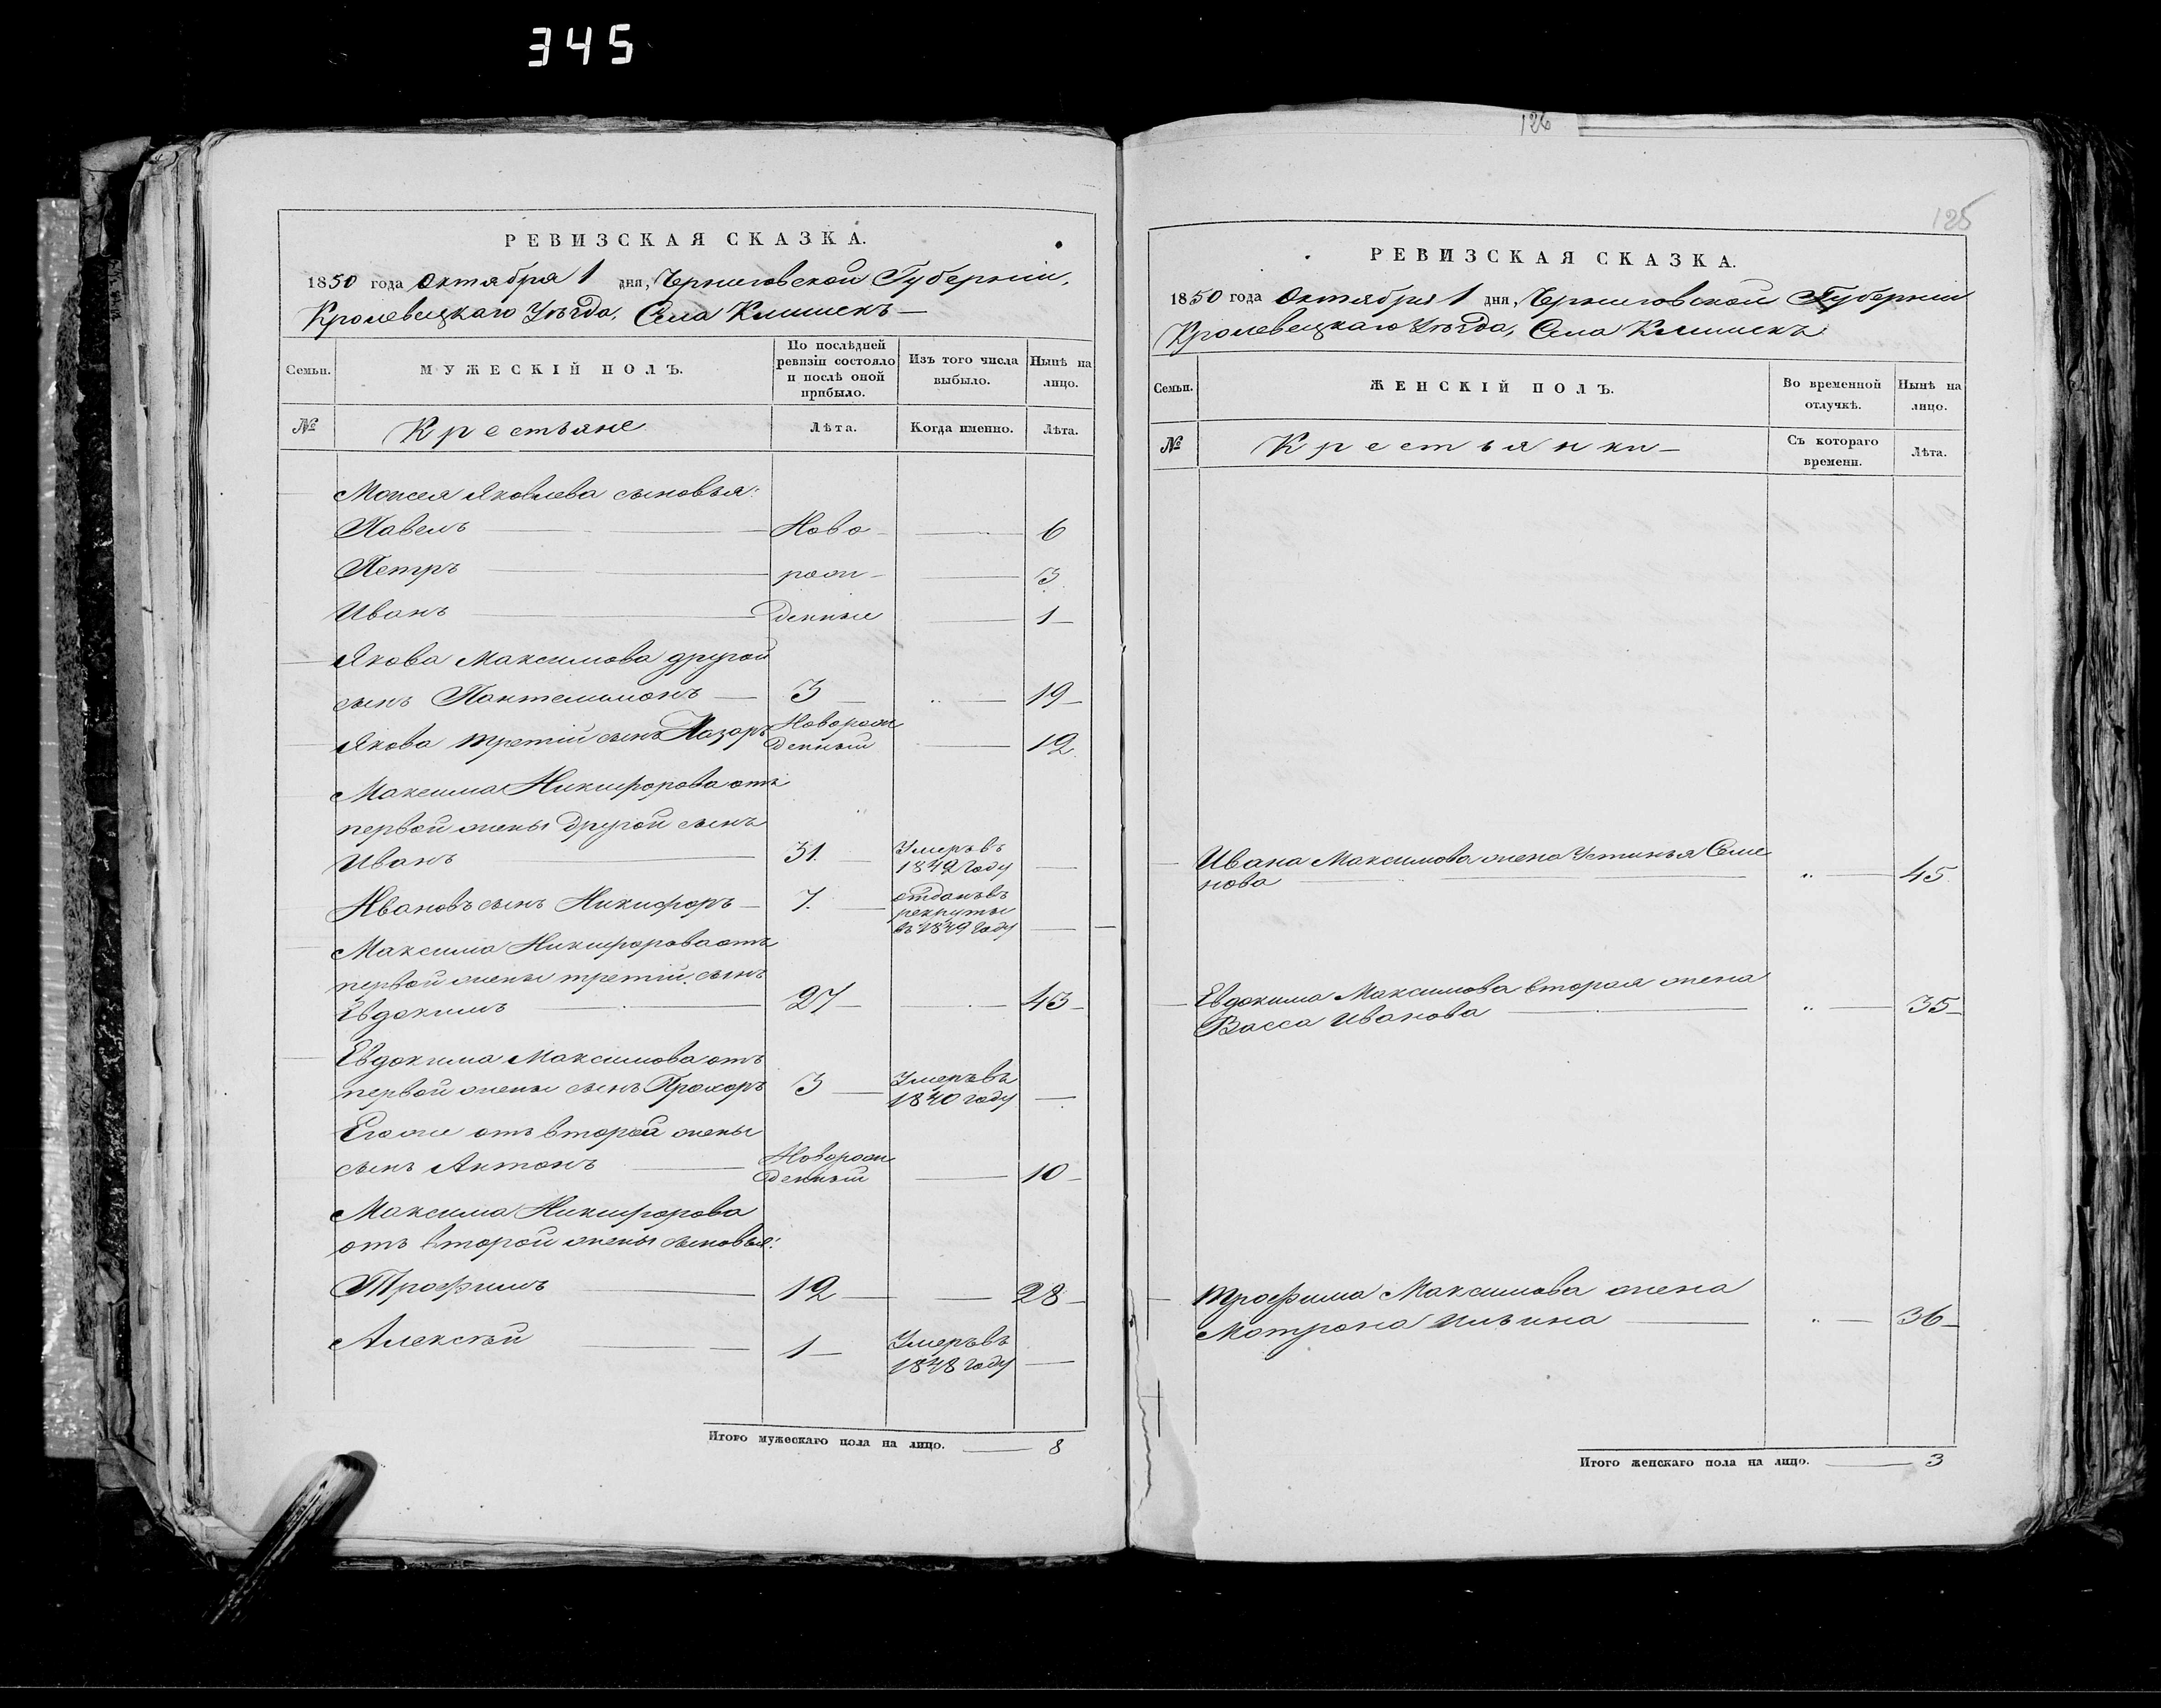 345
РЕВИЗСКАЯ СКАЗКА.
1850 года Октября 1 дня, Черниговской Губерніи,
Кролевецкаго Уѣзда, Села Клишекъ
Семьи.
МУЖЕСКІЙ ПОЛЪ.
По послѣдней ревизіи состояло и послѣ оной прибыло.
Изъ того числа выбыло.
Нынѣ на лицо.
№
Крестьяне
Лѣта.
Когда именно.
Лѣта.
Моисея Яковлева сыновья:
Павелъ Ново 6
Петръ рож 3
Иванъ денные 1
Якова Максимова другой
сынъ Пантелимонъ 3 19
Якова третій сынъ НазаръНоворож
денный 12
Максима Никифорова отъ
первой жены другой сынъ
Иванъ 31. Умеръ въ
1842 году
Ивановъ сынъ Никифоръ 7. отданъ въ
рекруты
въ 1849 году
Максима Никифорова отъ
первой жены третій сынъ
Евдокимъ 27 43
Евдокима Максимова отъ
первой жены сынъ Прохоръ 3 Умеръ въ
1840 году
Его же отъ второй жены
сынъ Антонъ Новорож
денный 10
Максима Никифорова
отъ второй жены сыновья:
Трофимъ 12 28
Алексѣй 1 Умеръ въ
1848 году
Итого мужескаго пола на лицо. 8
126
125
РЕВИЗСКАЯ СКАЗКА.
1850 года Октября 1 дня, Черниговской Губерніи
Кролевецкаго Уѣзда, Села Клишекъ
Семьи.
ЖЕНСКІЙ ПОЛЪ.
Во временной отлучкѣ.
Нынѣ на лицо.
№
Крестьянки
Съ котораго времени.
Лѣта.
Ивана Максимова жена Устинья Семе
нова 45
Евдокима Максимова вторая жена
Васса Иванова 35
Трофима Максимова жена
Мотрона Ильина 36
Итого женскаго пола на лицо. 3